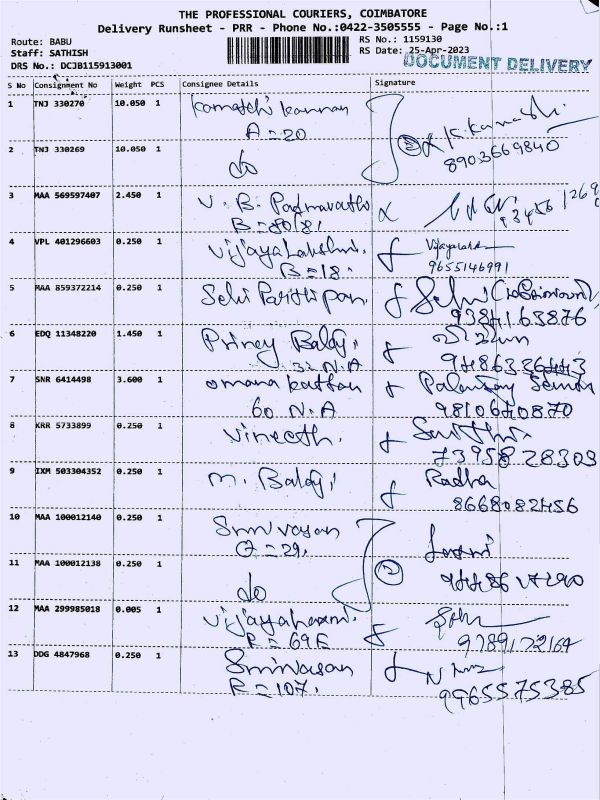 THE PROFESSIONAL COURIERS, COIMBATORE
Delivery Runsheet - PRR - Phone No.:0422-3505555 - Page No.:1
Route: BABU
RS No.: 1159130
Staff: SATHISH
RS Date: 25-Apr-2023
DRS No.: DCJB115913001
DOCUMENT DELIVERY
S No Consignment No Weight PCS Consignee Details Signature
1 TNJ 330270 10.050 1 Kamatchi Kannan
A = 20
2 K.Kamatchi
8903669840
2 TNJ 330269 10.050 1 do
3 MAA 569597407 2.450 1 V. B. Padmavathi
B = 80/81
4 VPL 401296603 0.250 1 Vijayalakshmi.
B = 18.
Vijayalakshmi
9655146991
5 MAA 859372214 0.250 1 Selvi Parithipan
Selvi
9384163876
6 EDQ 11348220 1.450 1 Princy Balaji,
32 N.A
7 SNR 6414498 3.600 1 omana kuttan
60 N.A
9810640870
8 KRR 5733899 0.250 1 Vineeth.
7395828303
9 IXM 503304352 0.250 1 M. Balaji
Radha
8668082456
10 MAA 100012140 0.250 1 Srinivasan
Q = 29.
2
11 MAA 100012138 0.250 1 do
12 MAA 299985018 0.005 1 Vijayalaxmi.
R = 69E
9789172164
13 DDG 4847968 0.250 1 Srinivasan
R = 107.
9965575385